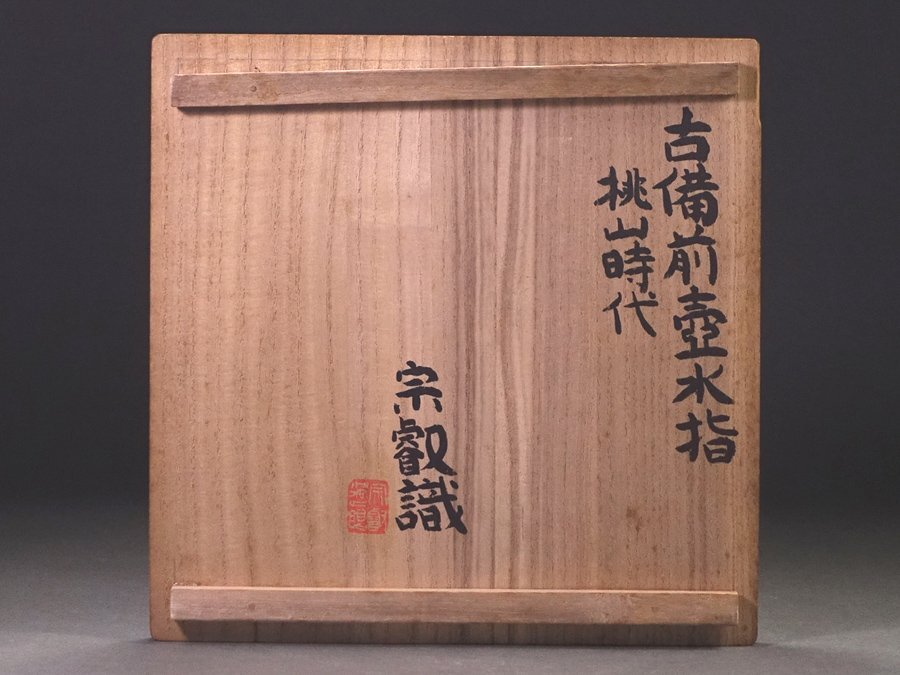 古備前壺水指
桃山時代
宗叡識